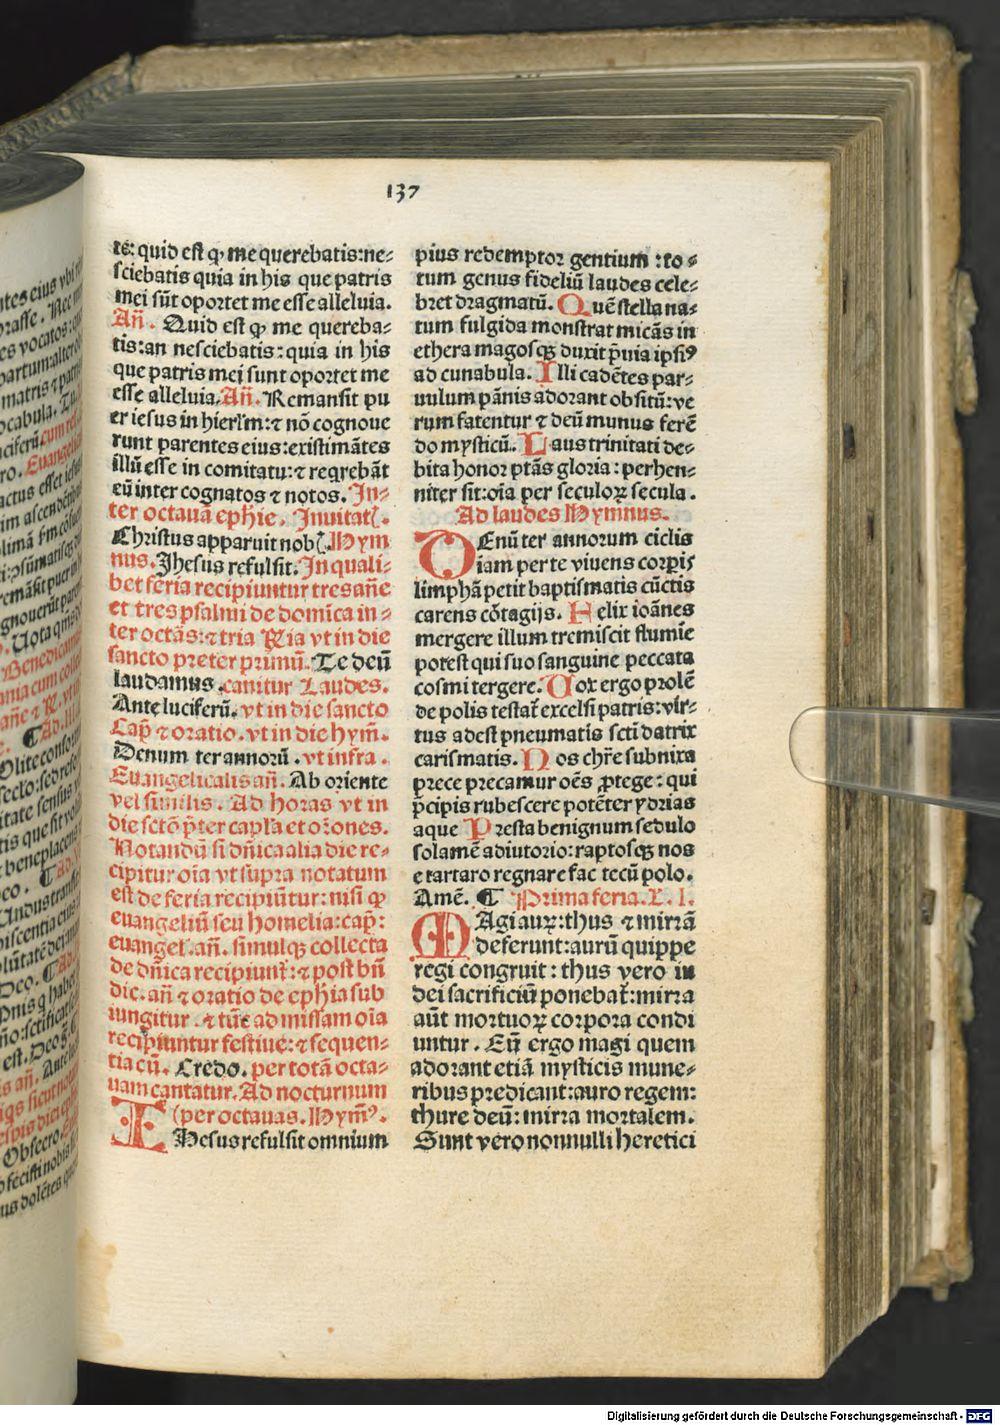 137
te: quid est q̢ me querebatis:ne⸗
sciebatis quia in his que patris
mei sūt oportet me esse alleluia.
Añ. Quid est q̢ me quereba⸗
tis:an nesciebatis:quia in his
que patris mei sunt oportet me
esse alleluia. Añ. Remansit pu
er iesus in hierl'm:⁊ nō cognoue
runt parentes eius:existimātes
illū esse in comitatu:⁊ reqrebāt
eū inter cognatos ⁊ notos. In⸗
ter octauā ephie. Inuitatꝭ.
Christus apparuit nobꝭ. Hym
nus. Jhesus refulsit. In quali⸗
bet feria recipiuntur tres añe
et tres psalmi de domīca in⸗
ter octās:⁊ tria R̄ia vt in die
sancto preter primū. Te deū
laudamus. canitur Laudes.
Ante luciferū. vt in die sancto
Cap̄ ⁊ oratio. vt in die hym̄.
Denum ter annorū. vt infra.
Euangelicalis añ. Ab oriente
vel similis. Ad horas vt in
die sctō p̄ter capl'a et or̄ones.
Notandū si dn̄ica alia die re⸗
cipitur oīa vt supra notatum
est de feria recipiūtur: nisi ꝙ
euangeliū seu homelia: cap̄:
euangel. añ. simulqꝫ collecta
de dn̄ica recipiunt̄:⁊ post bñ
dic. añ ⁊ oratio de ephīa sub
iungitur. ⁊ tūc ad missam oīa
recipiuntur festiue:⁊ sequen⸗
tia cū. Credo. per totā octa⸗
uam cantatur. Ad nocturnum
(per octauas. Hym̄ꝰ.
IHesus refulsit omnium
pius redemptor gentium :to⸗
tum genus fideliū laudes cele⸗
bret dragmatū. Quē stella na⸗
tum fulgida monstrat micās in
ethera magosqꝫ duxit p̄uia ipsiꝰ
ad cunabula. Illi cadētes par⸗
uulum pānis adorant obsitū:ve
rum fatentur ⁊ deū munus ferē
do mysticū. Laus trinitati de⸗
bita honor ptās gloria: perhen⸗
niter sit:oīa per seculoꝝ secula.
Ad laudes Hymnus.
DEnū ter annorum ciclis
iam per te viuens corpis
limphā petit baptismatis cūctis
carens cōtagijs. Helix ioānes
mergere illum tremiscit flumīe
potest qui suo sanguine peccata
cosmi tergere. Vox ergo prolē
de polis testat̄ excelsi patris:vir⸗
tus adest pneumatis scti datrix
carismatis. Nos chr̄e subnixa
prece precamur oēs ꝓtege: qui
p̄cipis rubescere potēter ydrias
aque Presta benignum sedulo
solamē adiutorio:raptosqꝫ nos
e tartaro regnare fac tecū polo.
Amē. ¶ Prima feria. L. I.
MAgi auꝝ:thus ⁊ mirrā
deferunt:aurū quippe
regi congruit: thus vero in
dei sacrificiū ponebat̄:mirra
aūt mortuoꝝ corpora condi
untur. Eū ergo magi quem
adorant etiā mysticis mune⸗
ribus predicant:auro regem:
thure deū: mirra mortalem.
Sunt vero nonnulli heretici
Digitalisierung gefördert durch die Deutsche Forschungsgemeinschaft - DFG